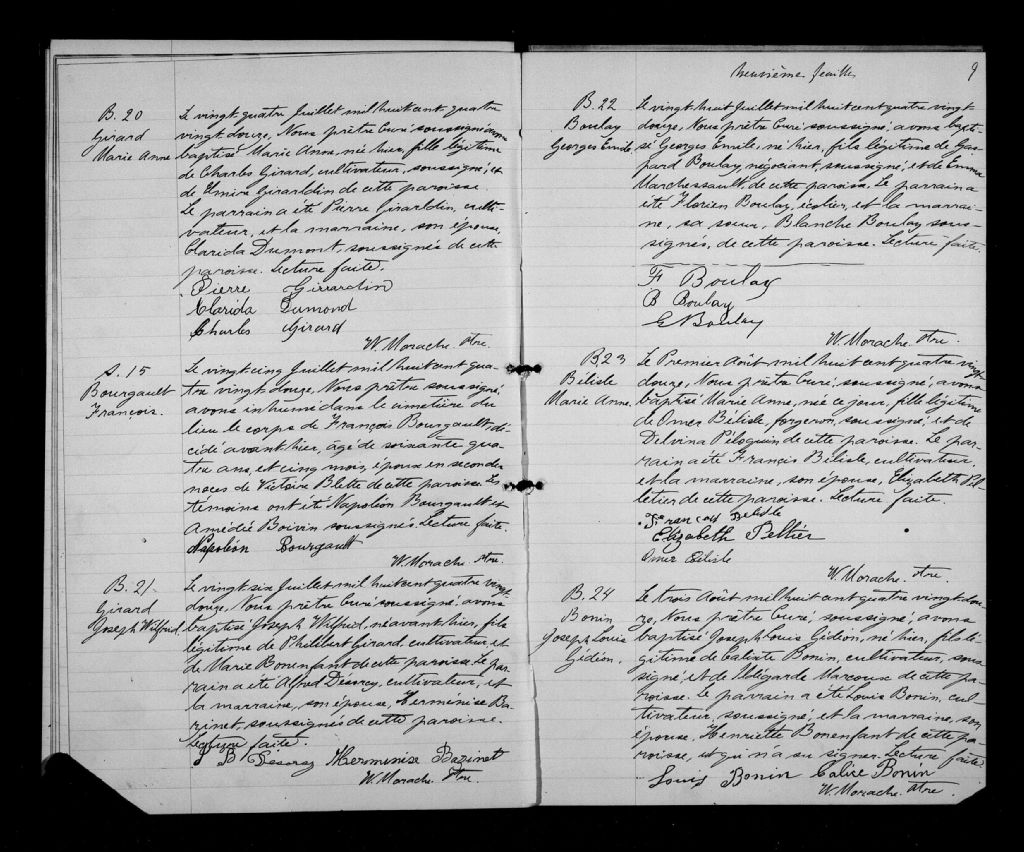 B. 20
Girard
Marie Anne
Le vingt quatre Juillet mil huit cent quatre
vingt douze, Nous prêtre Curé soussigné, avons
baptisé Marie Anne, née hier, fille légitime
de Charles Girard, cultivateur, soussigné, et
de Elmire Girardin de cette paroisse.
Le parrain a été Pierre Girardin, culti-
vateur, et la marraine, son épouse,
Clarida Dumont, soussignés de cette
paroisse. Lecture faite.
Pierre Girardin
Clarida Dumond
Charles Girard
W. Morache. Ptre.
S. 15
Bourgault
François.
Le vingt cinq Juillet mil huit cent qua-
tre vingt douze, Nous prêtre soussigné,
avons inhumé dans le cimetière du
lieu le corps de François Bourgault dé-
cédé avant hier, âgé de soixante qua-
tre ans, et cinq mois, époux en secondes
noces de Victoire Blette de cette paroisse. Les
temoins ont été Napoléon Bourgault et
Amédié Boivin soussignés. Lecture faite
Napoléon Bourgault
W. Morache. Ptre.
B. 21.
Girard
Joseph Wilfrid.
Le vingt six Juillet mil huit cent quatre vingt
douze, Nous prêtre Curé soussigné, avons
baptisé Joseph Wilfrid, né avant hier, fils
légitime de Philibert Girard, cultivateur, et
de Marie Bonenfant de cette paroisse. Le par-
rain a été Alfred Désorcy, cultivateur, et
la marraine, son épouse, Herménise Ba-
zinet, soussignés de cette paroisse.
Lecture faite.
Désorcy Herminise Bazinet
W. Morache. Ptre
neuvième feuille
9
B. 22
Boulay
Georges Emile.
Le vingt huit Juillet mil huit cent quatre vingt
douze, Nous prêtre Curé soussigné, avons bapti-
sé Georges Emile, né hier, fils légitime de Gas-
pard Boulay, négociant, soussigné, et de Emma
Marchessault, de cette paroisse. Le parrain a
été Florien Boulay, écolier, et la marrai-
ne, sa soeur, Blanche Boulay sous-
signés, de cette paroisse. Lecture faite.
F Boulay
B Boulay
G Boulay
W. Morache. Ptre.
B. 23
Bélisle
Marie Anne.
Le Premier Août mil huit cent quatre vingt
douze, Nous prêtre Curé, soussigné, avons
baptisé Marie Anne, née ce jour, fille légitime
de Omer Bélisle, forgeron, soussigné, et de
Delvina Péloquin de cette paroisse. Le par-
rain a été François Bélisle, cultivateur,
et la marraine, son épouse, Elizabeth Pel-
letier de cette paroisse. Lecture faite.
Francois Belisle
Elizabeth Peltier
Omer Bélisle
W. Morache. Ptre.
B. 24
Bonin
Joseph Louis
Gidéon.
Le trois Août mil huit cent quatre vingt dou-
ze, Nous prêtre Curé, soussigné, avons
baptisé Joseph Louis Gidéon, né hier, fils lé-
gitime de Calixte Bonin, cultivateur, sous-
signé, et de Ildégarde Marcoux de cette pa-
roisse. Le parrain a été Louis Bonin, cul-
tivateur, soussigné, et la marraine, son
épouse, Henriette Bonenfant de cette pa-
roisse, et qui n'a su signer. Lecture faite.
Louis Bonin Calixe Bonin
W. Morache. Ptre.